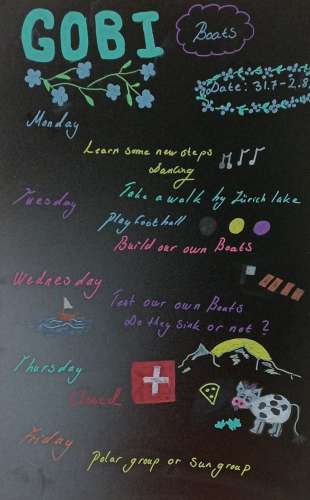 GOBI
Boats
Date: 31.7-2.8
Monday
Learn some new steps
Dancing
Tuesday
Take a walk by Zürich lake
Play football
Build our own Boats
Wednesday
Test our own Boats
Do they sink or not ?
Thursday
Closed
Friday
Polar group or Sun group